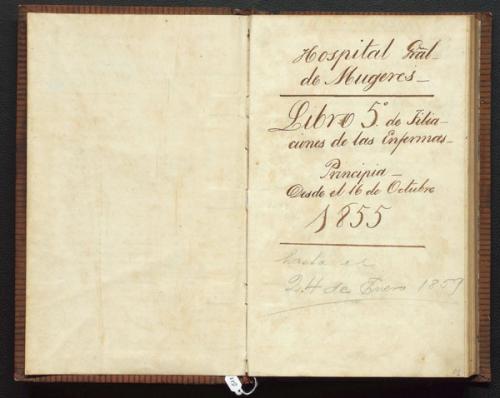 Hospital Gral
de Mugeres_
Libro 5.° de Filia-
ciones de las Enfermas_
Principia_
Desde el 16 de Octubre
1855
hasta el
24 de Enero 1859